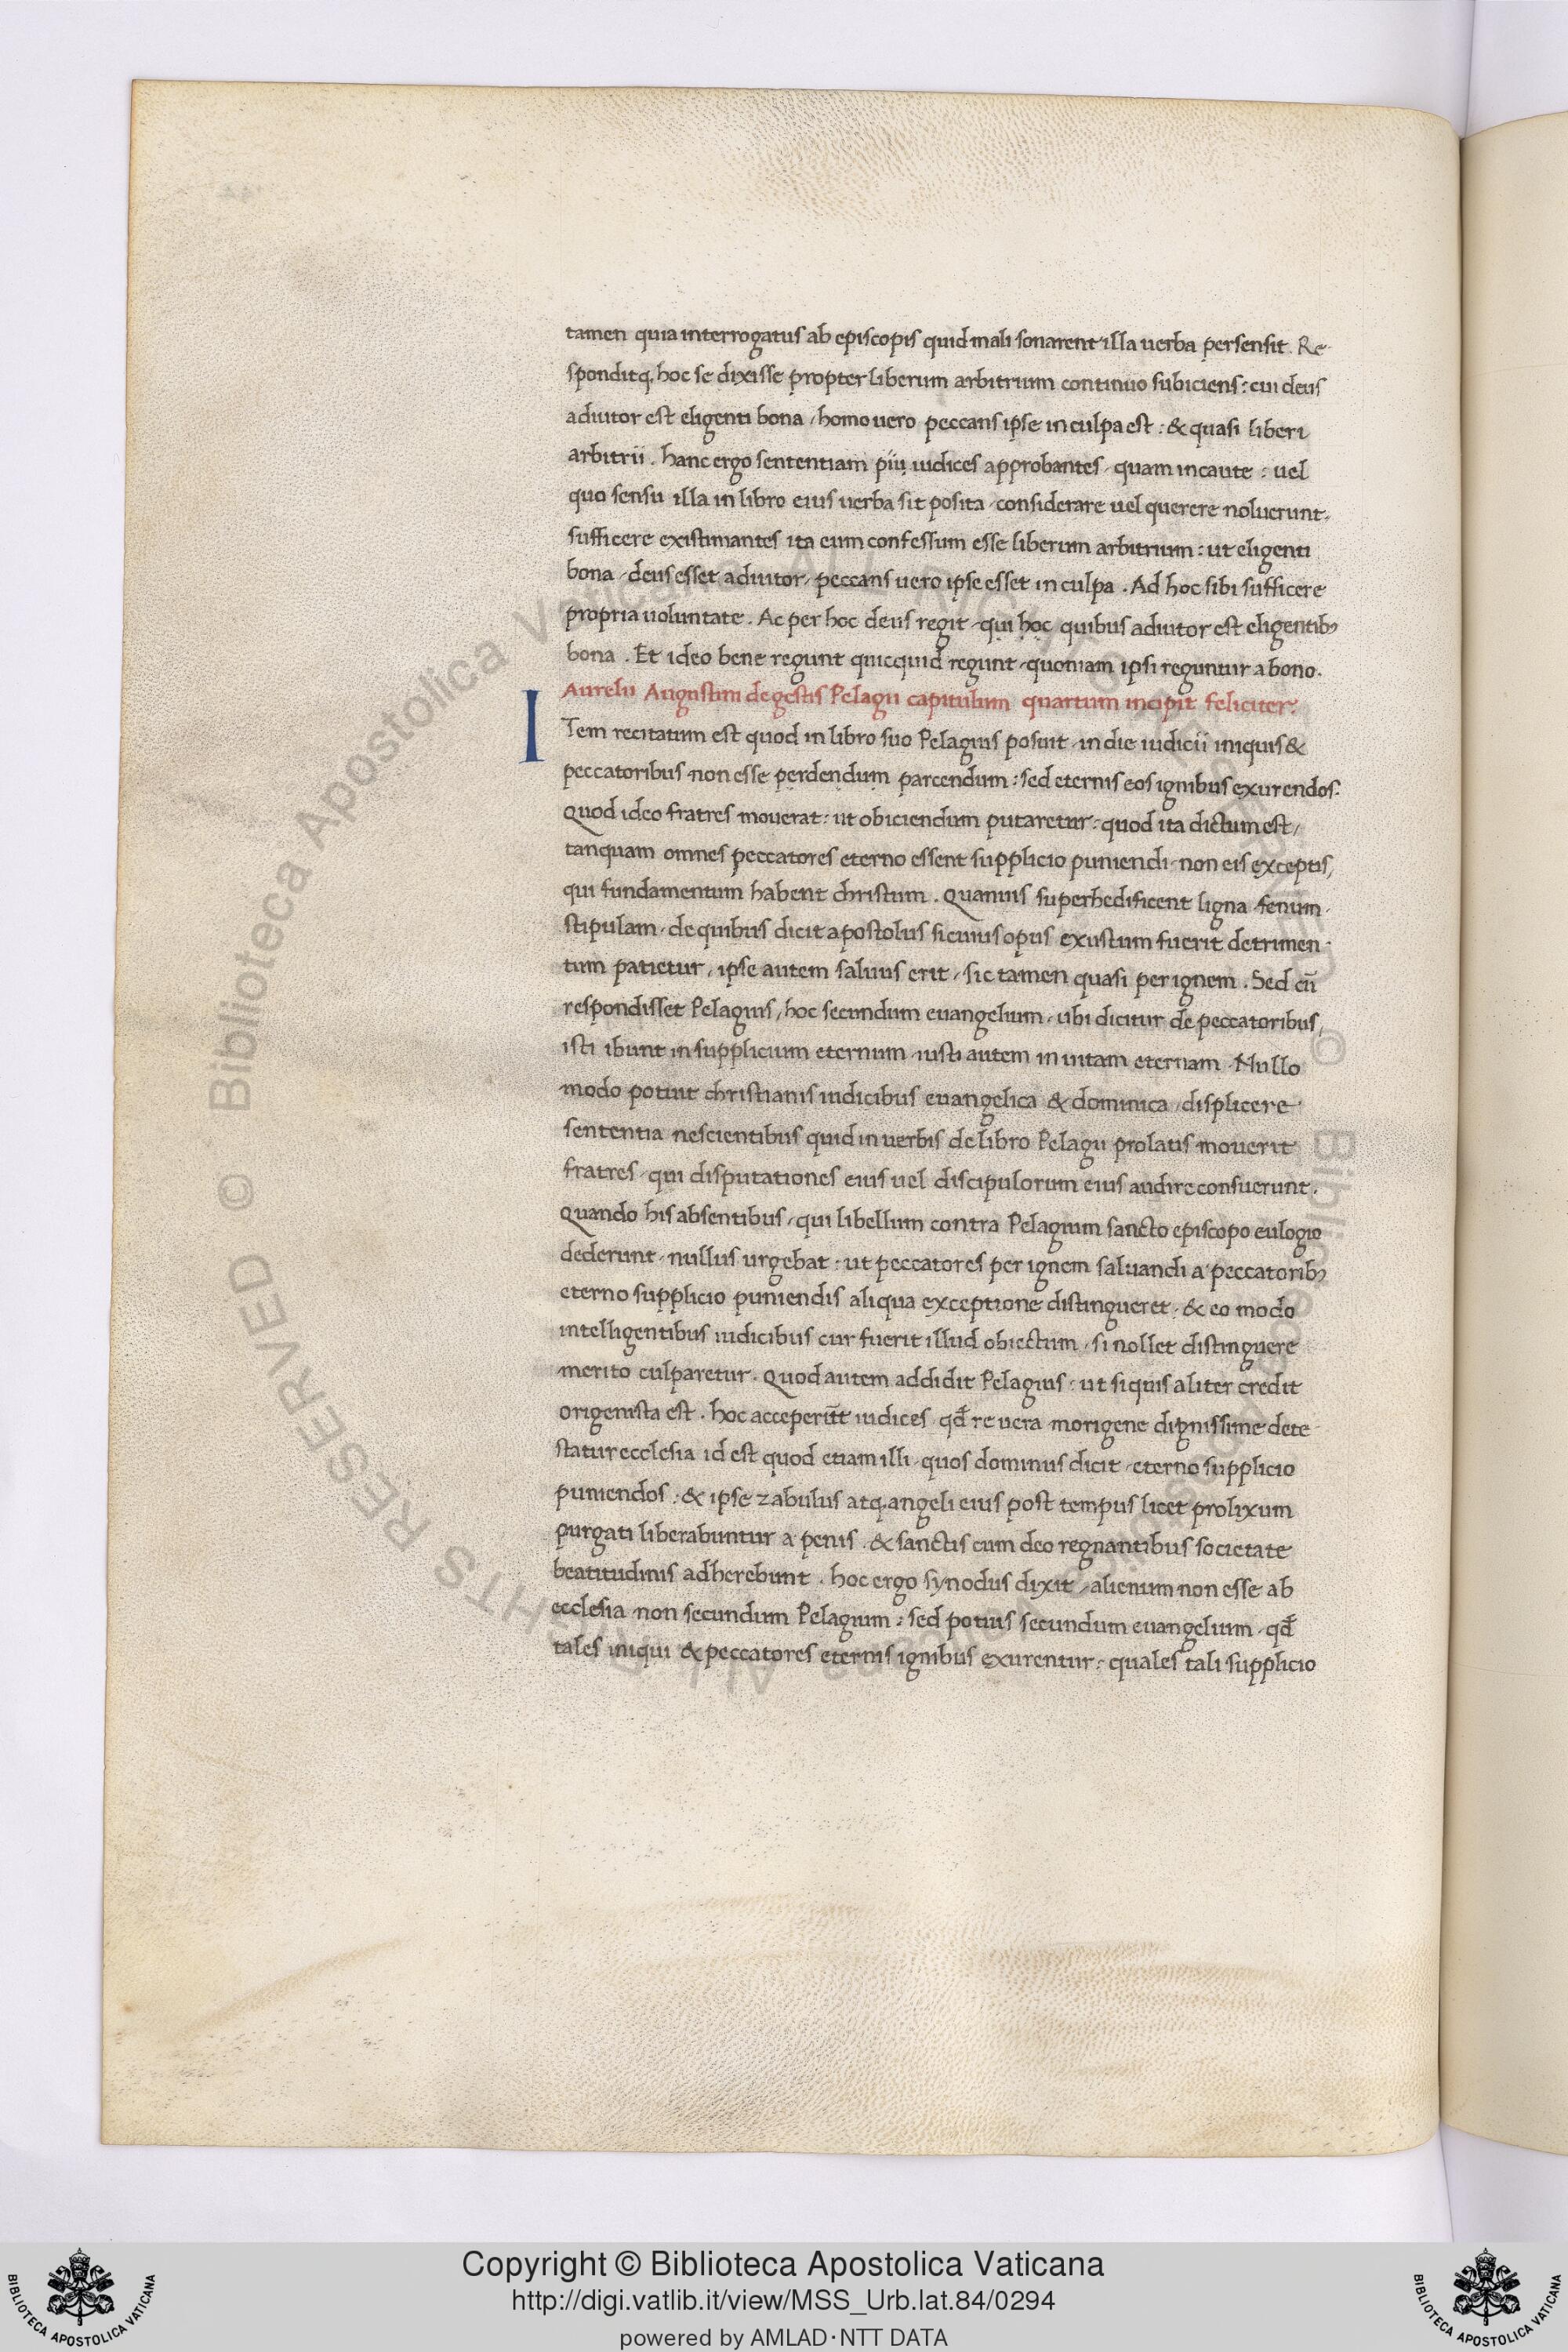 tamen quia interrogatus ab episcopis quid mali sonarent illa uerba persensit. Re
sponditq. hoc se dixisse propter liberum arbitrium continuo subiciens: cui deus
adiutor est eligenti bona, homo uero peccans ipse in culpa est: & quasi liberi
arbitrii. hanc ergo sententiam pii iudices approbantes, quam incaute: uel
quo sensu illa in libro eius uerba sit posita, considerare uel querere noluerunt,
sufficere existimantes ita eum confessum esse liberum arbitrium: ut eligenti
bona, deus esset adiutor, peccans uero ipse esset in culpa. Ad hoc sibi sufficere
propria uoluntate. Ac per hoc deus regit, qui hoc quibus adiutor est eligentibꝫ
bona. Et ideo bene regunt quicquid regunt, quoniam ipsi reguntur a bono.
Aurelii Augustini de gestis Pelagii capitulum quartum incipit feliciter.
ITem recitatum est quod in libro suo Pelagius posuit, in die iudicii iniquis &
peccatoribus non esse perdendum parcendum: sed eternis eos ignibus exurendos.
Quod ideo fratres mouerat: ut obiciendum putaretur: quod ita dictum est,
tanquam omnes peccatores eterno essent supplicio puniendi, non eis exceptis,
qui fundamentum habent christum. Quamuis superhedificent ligna, fenum,
stipulam, de quibus dicit apostolus si cuius opus exustum fuerit detrimen-
tum patietur, ipse autem saluus erit, sic tamen quasi per ignem. Sed cū
respondisset Pelagius, hoc secundum euangelium, ubi dicitur de peccatoribus,
isti ibunt in supplicium eternum, iusti autem in uitam eternam. Nullo
modo potuit christianis iudicibus euangelica & dominica, displicere
sententia nescientibus quid in uerbis de libro Pelagii prolatis mouerit
fratres, qui disputationes eius uel discipulorum eius audire consuerunt.
Quando his absentibus, qui libellum contra Pelagium sancto episcopo eulogio
dederunt, nullus urgebat: ut peccatores per ignem saluandi a peccatoribꝫ
eterno supplicio puniendis aliqua exceptione distingueret, & eo modo
intelligentibus iudicibus cur fuerit illud obiectum, si nollet distinguere
merito culparetur. Quod autem addidit Pelagius: ut si quis aliter credit
origenista est. hoc acceperūt iudices, qđ re uera morigene dignissime dete
statur ecclesia id est quod etiam illi, quos dominus dicit, eterno supplicio
puniendos: & ipse zabulus atq. angeli eius post tempus licet prolixum
purgati liberabuntur a penis. & sanctis cum deo regnantibus societate
beatitudinis adherebunt. hoc ergo synodus dixit, alienum non esse ab
ecclesia non secundum Pelagium: sed potius secundum euangelium, qđ
tales iniqui & peccatores eternis ignibus exurentur: quales tali supplicio
© Biblioteca Apostolica Vaticana
ALL RIGHTS RESERVED
Copyright © Biblioteca Apostolica Vaticana
http://digi.vatlib.it/view/MSS_Urb.lat.84/0294
powered by AMLAD·NTT DATA
BIBLIOTECA APOSTOLICA VATICANA
BIBLIOTECA APOSTOLICA VATICANA